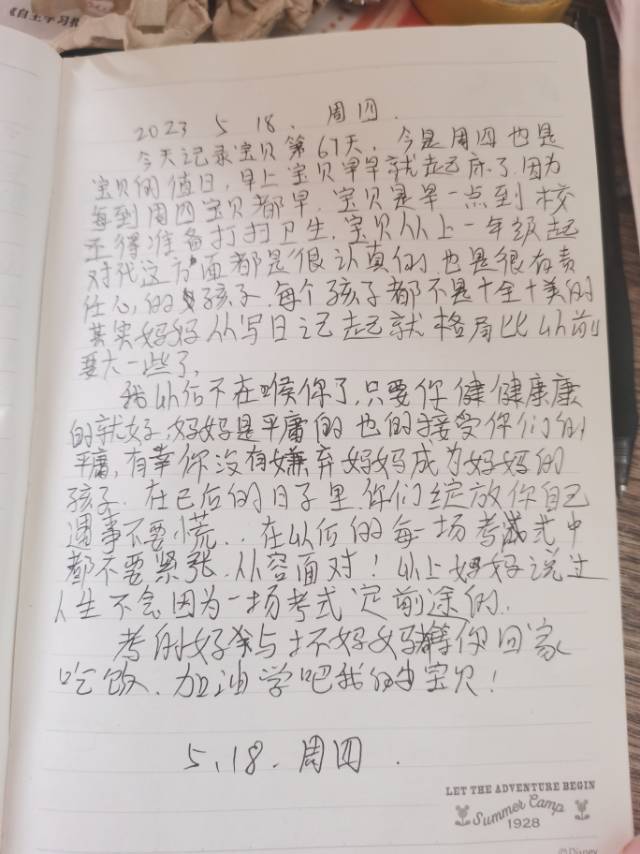 《自主学习
2023 5 18. 周四.
今天记录宝贝第67天, 今是周四也是
宝贝的值日, 早上宝贝早早就起床了因为
每到周四宝贝都早. 宝贝是早一点到校
还得准备打扫卫生. 宝贝从上一年级起
对我这方面都是很认真的 也是很有责
任心, 的孩子. 每个孩子都不是十全十美的
其实妈妈从写日记起就格局比以前
要大一些了,
我以后不在喉你了, 只要你健健康康
的就好, 妈妈是平庸的 也的接受你们的
平庸, 有幸你没有嫌弃妈妈成为妈妈的
孩子. 在已后的日子里. 你们绽放你自己
遇事不要慌.. 在以后的每一场考试式中
都不要紧张. 从容面对! 以上妈妈说过
人生不会因为一场考式 定前途的.
考的好与坏妈妈等你回家
吃饭. 加油学吧我的宝贝!
5.18. 周四.
LET THE ADVENTURE BEGIN
Summer Camp
1928
©Disney